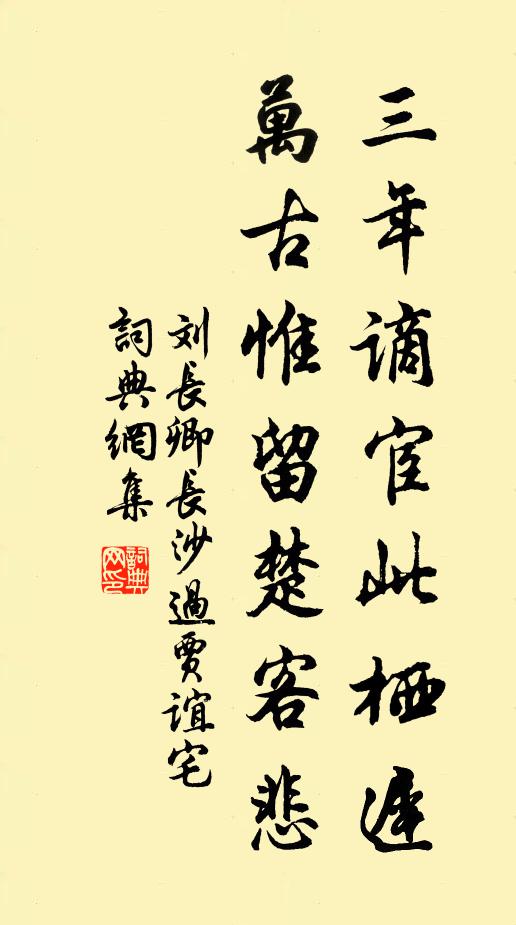 三年謫宦此栖遲
萬古惟留楚客悲
刘長卿長沙過賈誼宅
詞典網集
詞典网印